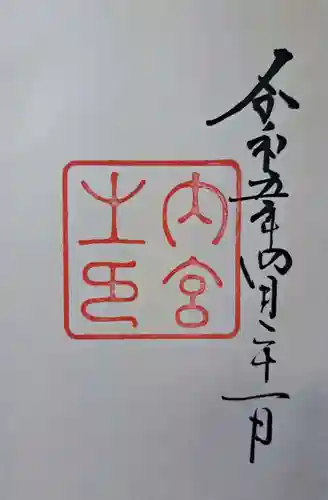 令和五年四月二十一日
内宮
之印